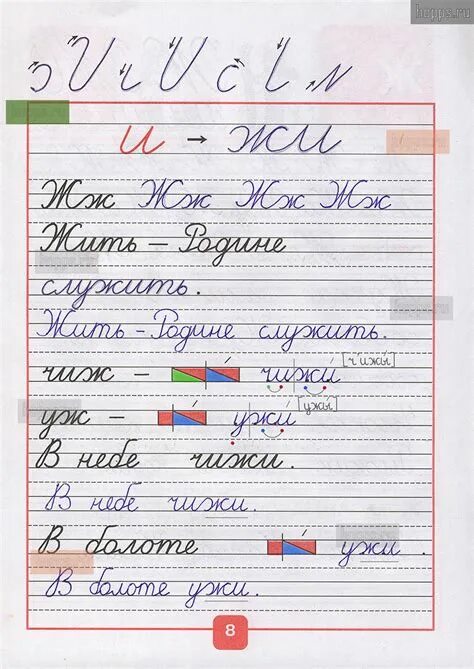 hopps.ru
и → жи
Жж Жж Жж Жж
Жить – Родине
служить.
Жить – Родине служить.
чиж – чижи [ч'ижы́]
уж – ужи [ужы́]
В небе чижи.
В небе чижи.
В болоте ужи.
В болоте ужи.
8